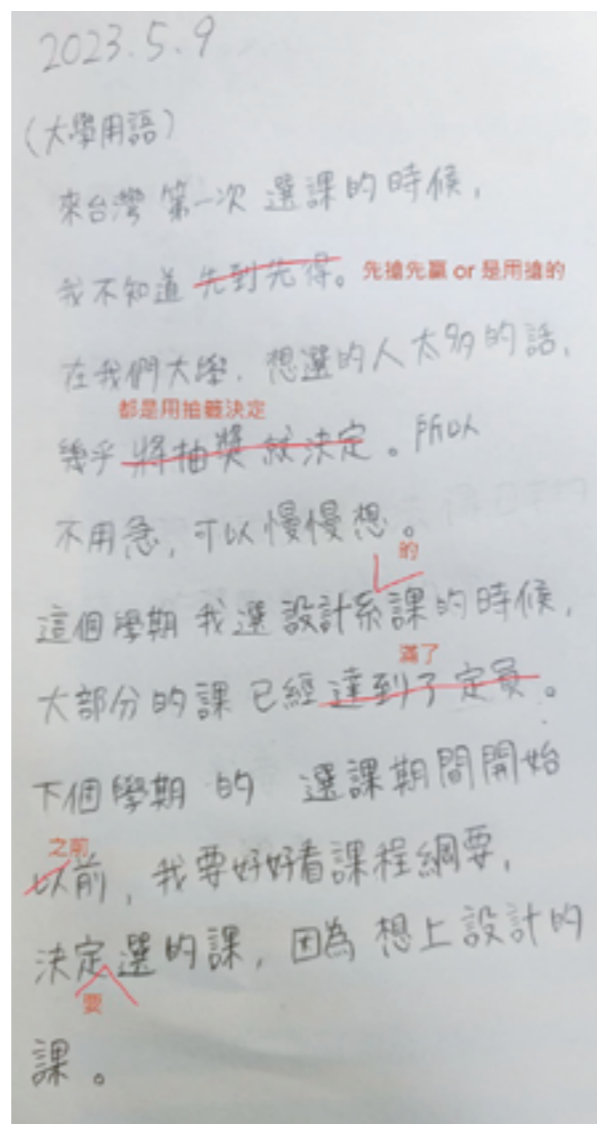 2023.5.9
(大學用語)
來台灣 第一次 選課的時候,
我不知道 先到先得。 先搶先贏 or 是用搶的
在我們大學, 想選的人太多的話,
都是用抽籤決定
幾乎 將抽獎 決定。所以
不用急, 可以慢慢想。
的
這個學期 我選 設計系課的時候,
滿了
大部分的課 已經達到了定員。
下個學期 的 選課期間開始
之前
以前, 我要好好看課程綱要,
決定選的課, 因為 想上設計的
要
課。